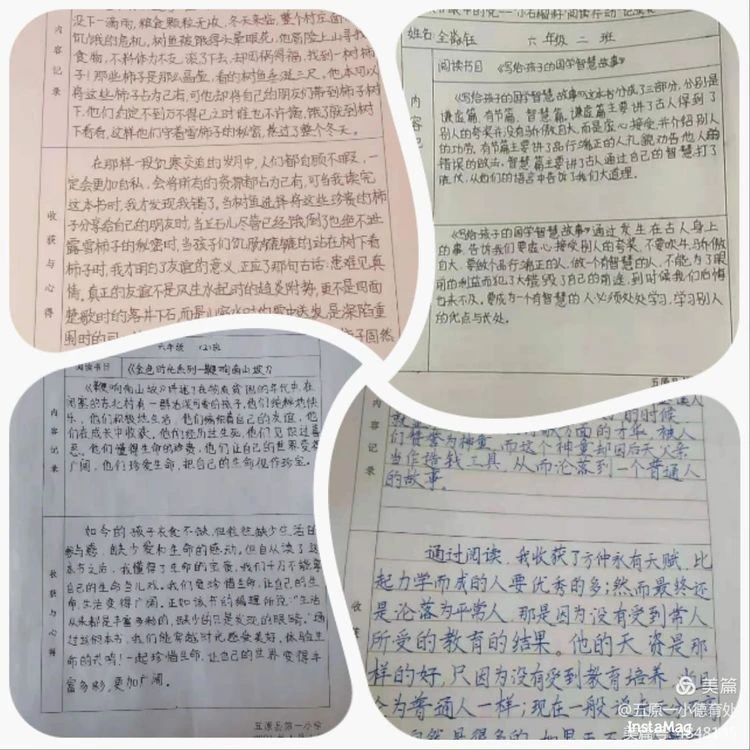 没下一滴雨,粮食颗粒无收,冬天来临,整个村庄面
饥饿的危机,树鱼被饿得头晕眼花,他冒险上山寻找
食物,不料体力不支,滚了下去,却因祸得福,找到一树柿
子!那些柿子是那么晶莹,看的树鱼垂涎三尺,他本可以
将这些柿子占为己有,可他却将自己的朋友们带到柿子树
下,他们约定不到万不得已之时谁也不许摘,饿了就到树
下看看,这样他们守着雪柿子的秘密,熬过了整个冬天。
内容记录
在那样一段饥寒交迫的岁月中,人们都自顾不暇,一
定会更加自私,会将所有的资源都占为己有,可当我读完
这本书时,我才发现我错了,当树鱼选择将这些珍贵的柿
子分享给自己的朋友时,当丘石儿尽管已经饿倒了也绝不泄
露雪柿子的秘密时,当孩子们饥肠辘辘的站在树下看
柿子时,我才明白了友谊的意义,正应了那句古话:患难见真
情。真正的友谊不是风生水起时的趋炎附势,更不是四面
楚歌时的落井下石,而是
收获与心得
姓名:
六年级 二班
阅读书目
《写给孩子的国学智慧故事》
《写给孩子的国学智慧故事》这本书分成了三部分,分别是
谦虚篇,有节篇,智慧篇,谦虚篇主要讲了古人得到了
别人的夸奖并没有骄傲自大,而是虚心接受,并介绍别人
的功劳,有节篇主要讲了品行端正的人,
错误的政法,智慧篇主要讲了古人通过自己的智慧,打了
胜仗,从他们的语言中告诉了我们大道理。
《写给孩子的国学智慧故事》通过发生在古人身上
的事,告诉我们要虚心接受别人的夸奖,不要吹牛,骄傲
自大,要做个品行端正的人,做一个有智慧的人,不能为了眼
前的利益而犯了大错,毁了自己的前途,到时候我们后悔
也来不及,要成为一个有智慧的人必须处处学习,学习别人
的优点与长处。
六年级 (2)班
阅读书目
《金色时光系列—鞭响南山坡》
《鞭响南山坡》讲述了在物质贫困的年代中,在
闭塞的东北村有一群活泼可爱的孩子,他们
乐,他们积极地生活,他们编织着自己的友谊,他
们在成长中收获,他们经历过生死,他们见识过善
恶,他们懂得生命的珍贵,他们让自己的世界变得
广阔,他们珍爱生命,把自己的生命视作珍宝。
内容记录
如今的孩子衣食不缺,但往往缺少生活的
参与感,缺少爱和生命的感动。但自从读了这
本书之后,我懂得了生命的宝贵,我们千万不能拿
自己的生命当儿戏。我们要珍惜生命,让自己的生
命,生活变得广阔。正如该书的编理所说:"生活
从来都是丰富多彩的,缺少的只是发现的眼睛。"通
过这样本书,我们能穿越时光感受美好,体验生
命的光明!一起珍惜生命,让自己的世界变得丰
富多彩,更加广阔。
收获与心得
五原县第一小学
的时候
方面的才华,被人
们赞誉为神童,而这个神童却因后天父亲
当作挣钱工具,从而沦落到一个普通人
的故事。
内容记录
通过阅读,我收获了方仲永有天赋,比
起力学而成的人要优秀的多;然而最终还
是沦落为平常人,那是因为没有受到常人
所受的教育的结果。他的天资是那
样的好,只因为没有受到教育培养,
会为普通人一样;现在一般说来
美篇
@五原一小德育处
InstaMag